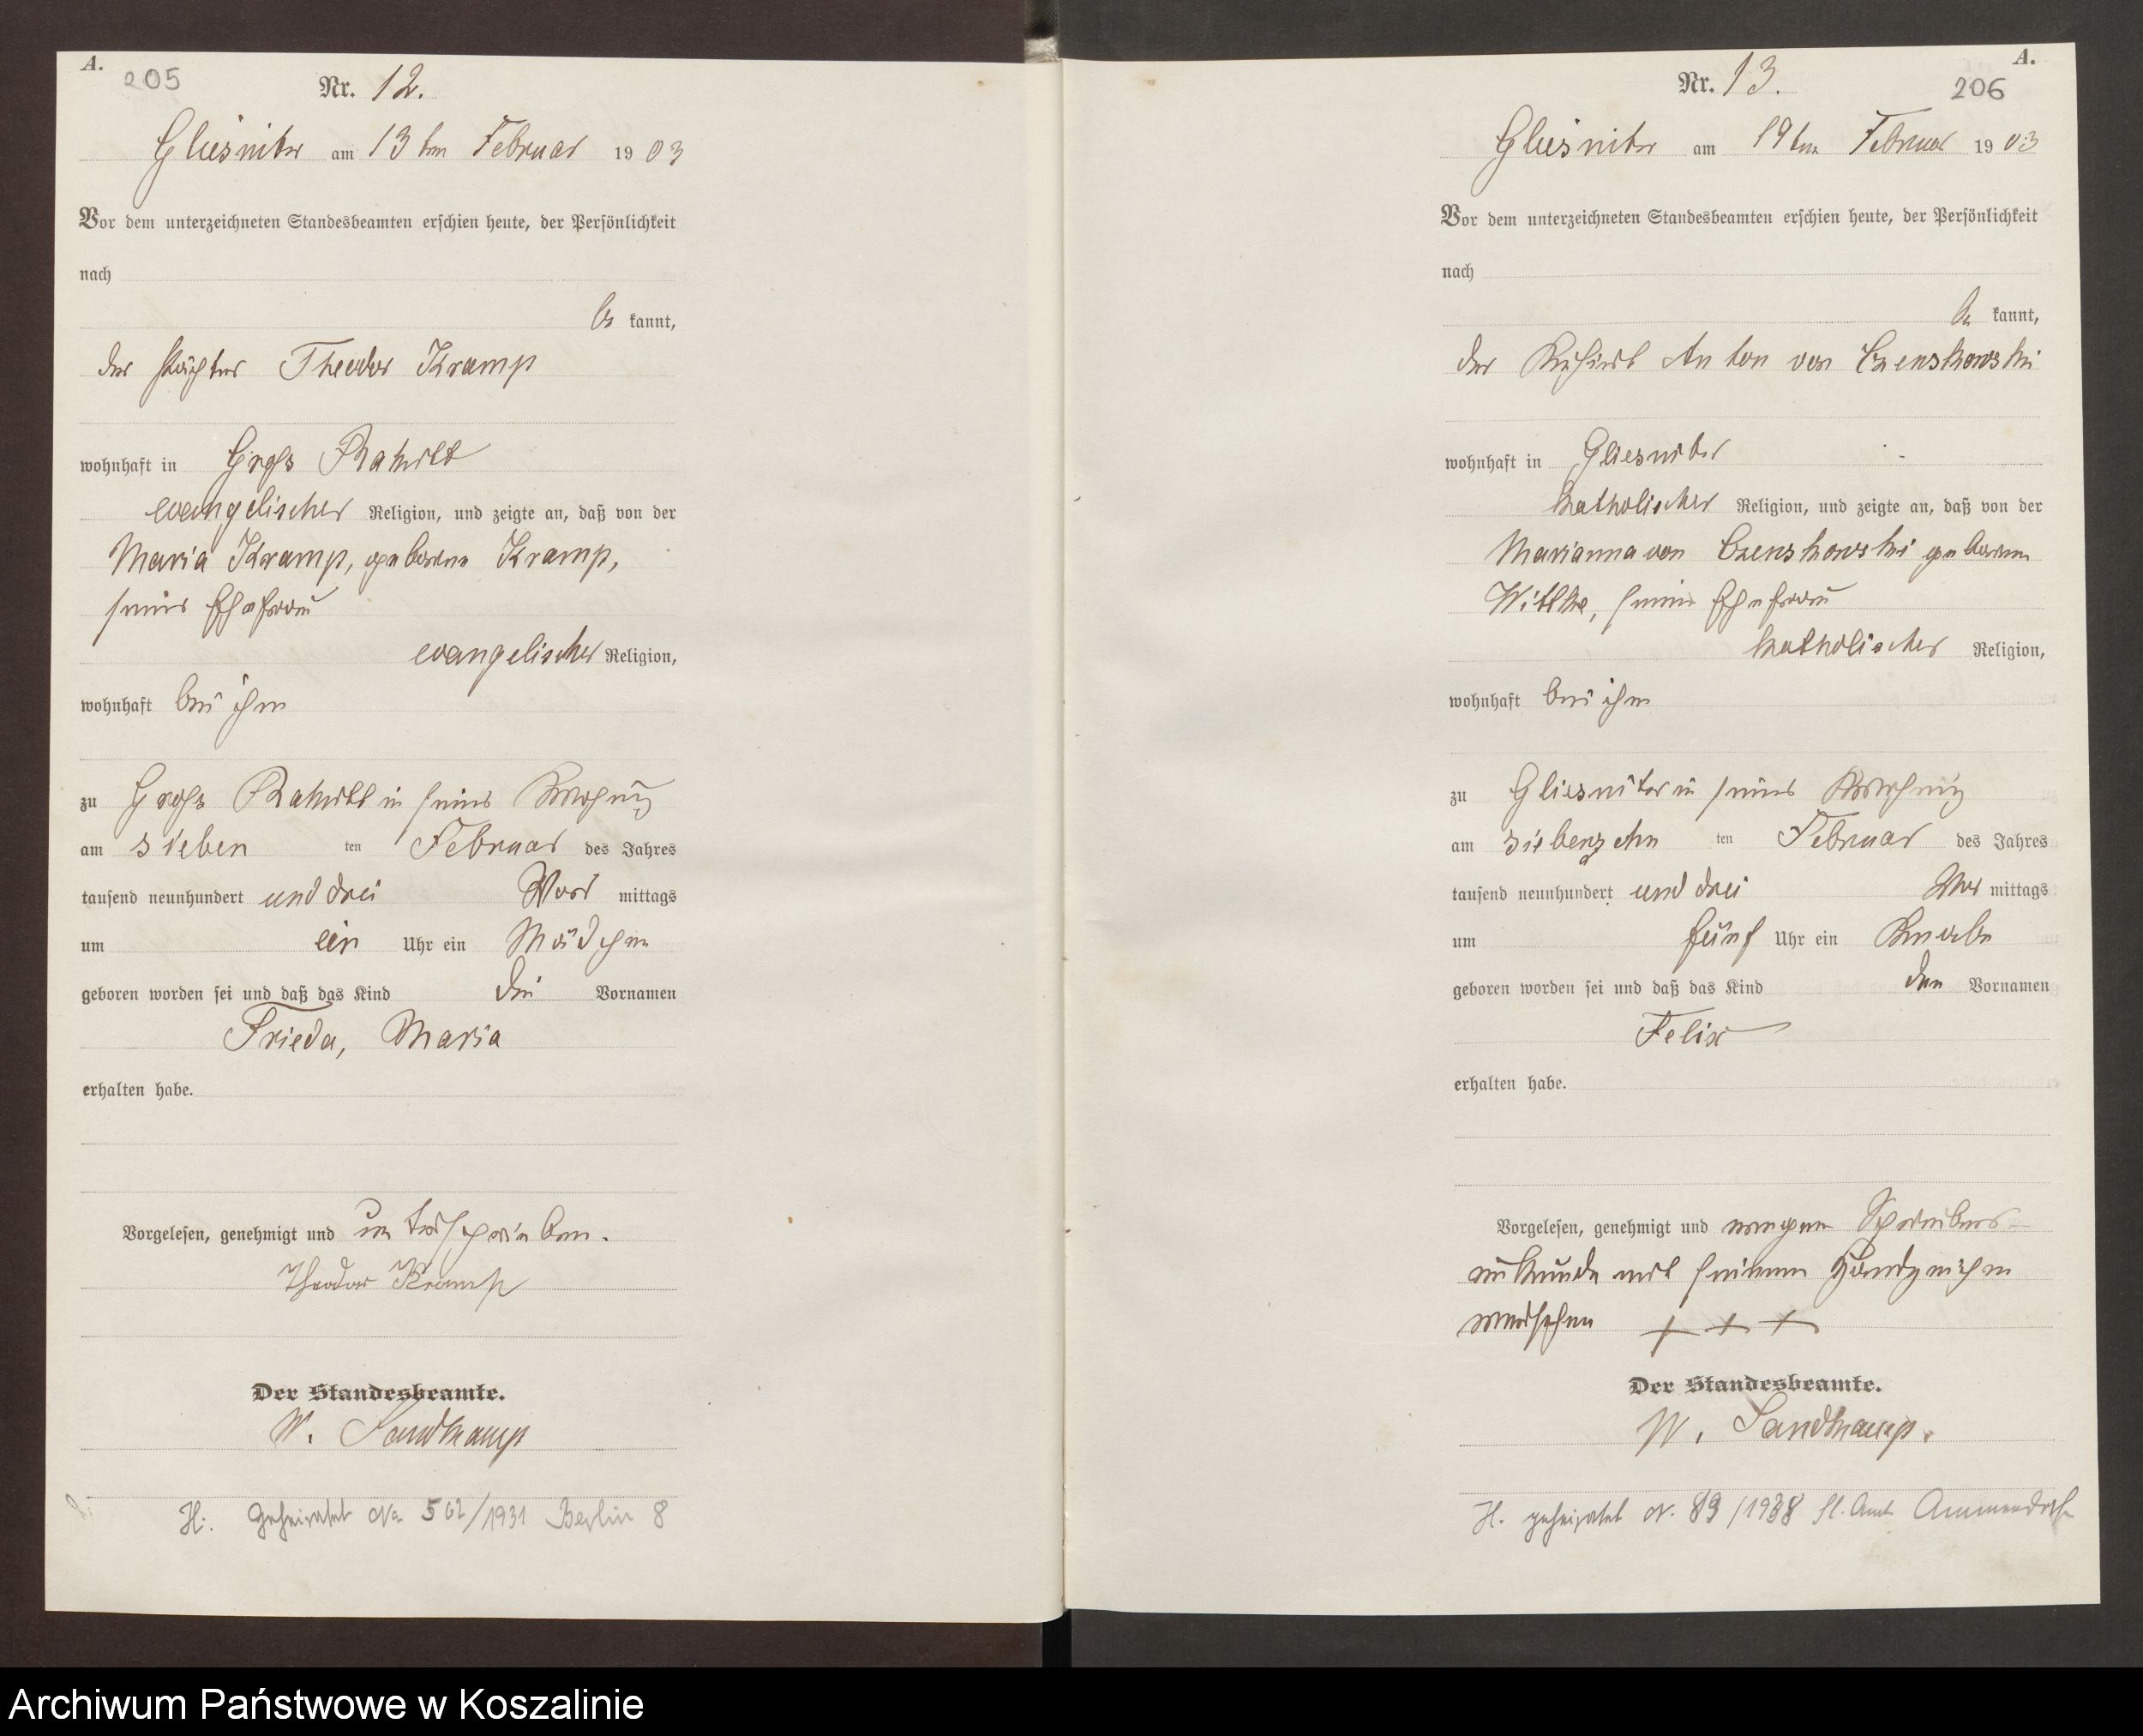 A.
205
Nr. 12.
Gliesnitz am 13ten Februar 1903
Vor dem unterzeichneten Standesbeamten erschien heute, der Persönlichkeit
nach
be kannt,
der Pächter Theodor Kramp
wohnhaft in Groß Rakitt
evangelischer Religion, und zeigte an, daß von der
Maria Kramp, geborene Kramp,
seiner Ehefrau
evangelischer Religion,
wohnhaft bei ihm
zu Groß Rakitt in seiner Wohnung
am sieben ten Februar des Jahres
tausend neunhundert und drei Vor mittags
um ein Uhr ein Mädchen
geboren worden sei und daß das Kind die Vornamen
Frieda, Maria
erhalten habe.
Vorgelesen, genehmigt und unterschrieben.
Theodor Kramp
Der Standesbeamte.
W. Sandkamp
H. geheiratet No 562/1931 Berlin 8
A.
206
Nr. 13.
Gliesnitz am 19ten Februar 1903
Vor dem unterzeichneten Standesbeamten erschien heute, der Persönlichkeit
nach
be kannt,
der Kuhhirt Anton von Czenskowski
wohnhaft in Gliesnitz
katholischer Religion, und zeigte an, daß von der
Marianna von Czenskowski geborene
Wittke, seiner Ehefrau
katholischer Religion,
wohnhaft bei ihm
zu Gliesnitz in seiner Wohnung
am siebenzehn ten Februar des Jahres
tausend neunhundert und drei Vor mittags
um fünf Uhr ein Knabe
geboren worden sei und daß das Kind den Vornamen
Felix
erhalten habe.
Vorgelesen, genehmigt und wegen Schreibens-
unkunde mit seinem Handzeichen
versehen + + +
Der Standesbeamte.
W. Sandkamp.
H. geheiratet N. 89/1938 St. Amt Ammendorf
Archiwum Państwowe w Koszalinie